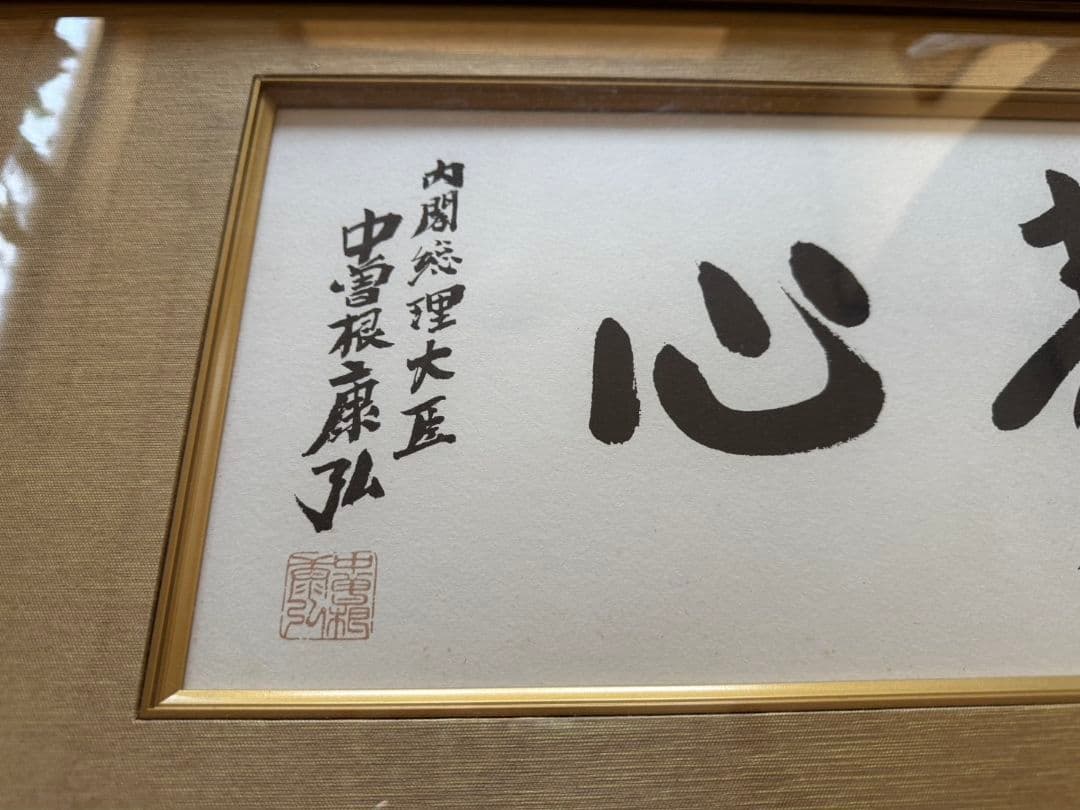 心
内閣総理大臣
中曽根康弘
中曽根
康弘